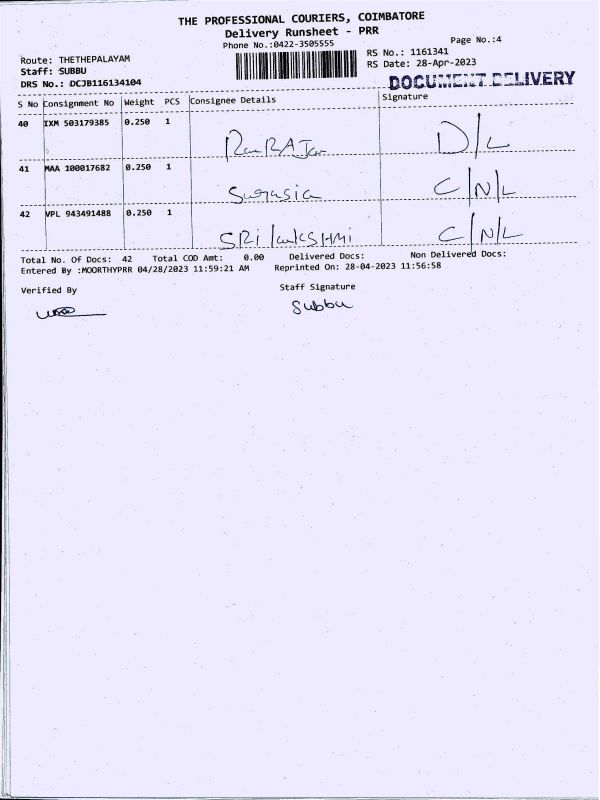 THE PROFESSIONAL COURIERS, COIMBATORE
Delivery Runsheet - PRR
Phone No.:0422-3505555
Page No.:4
Route: THETHEPALAYAM
RS No.: 1161341
Staff: SUBBU
RS Date: 28-Apr-2023
DRS No.: DCJB116134104
DOCUMENT DELIVERY
S No Consignment No Weight PCS Consignee Details Signature
40 IXM 503179385 0.250 1
D/L
41 MAA 100017682 0.250 1
C/N/L
42 VPL 943491488 0.250 1
SRi lakSHMi C/N/L
Total No. Of Docs: 42 Total COD Amt: 0.00 Delivered Docs: Non Delivered Docs:
Entered By :MOORTHYPRR 04/28/2023 11:59:21 AM Reprinted On: 28-04-2023 11:56:58
Verified By Staff Signature
Subbu